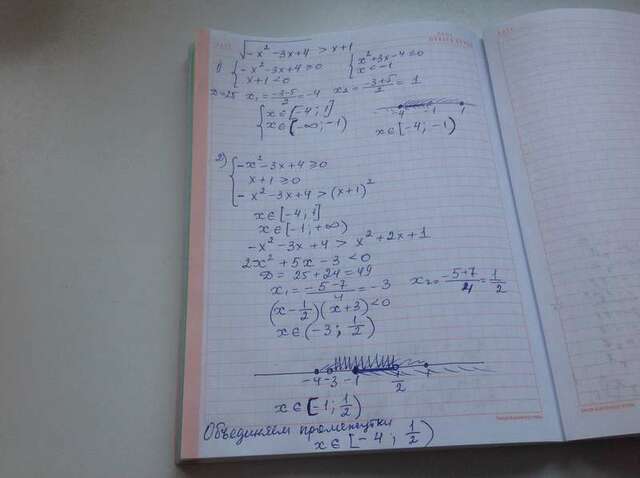 √-x² -3x+4 > x+1
1) { -x² -3x+4 ≥ 0   { x²+3x-4 ≤ 0
x+1 < 0   x < -1
D=25 x₁ = (-3-5)/2 = -4 x₂ = (-3+5)/2 = 1
{ x ∈ [-4; 1]
x ∈ (-∞; -1)
-4 -1 1
x ∈ [-4; -1)
2) { -x² -3x+4 ≥ 0
x+1 ≥ 0
-x² -3x+4 > (x+1)²
x ∈ [-4; 1]
x ∈ [-1; +∞)
-x² -3x+4 > x² +2x+1
2x² +5x -3 < 0
D = 25+24 = 49
x₁ = (-5-7)/4 = -3   x₂ = (-5+7)/4 = 1/2
(x - 1/2)(x+3) < 0
x ∈ (-3; 1/2)
-4 -3 -1 1/2 1
x ∈ [-1; 1/2)
Объединяем промежутки
x ∈ [-4; 1/2)